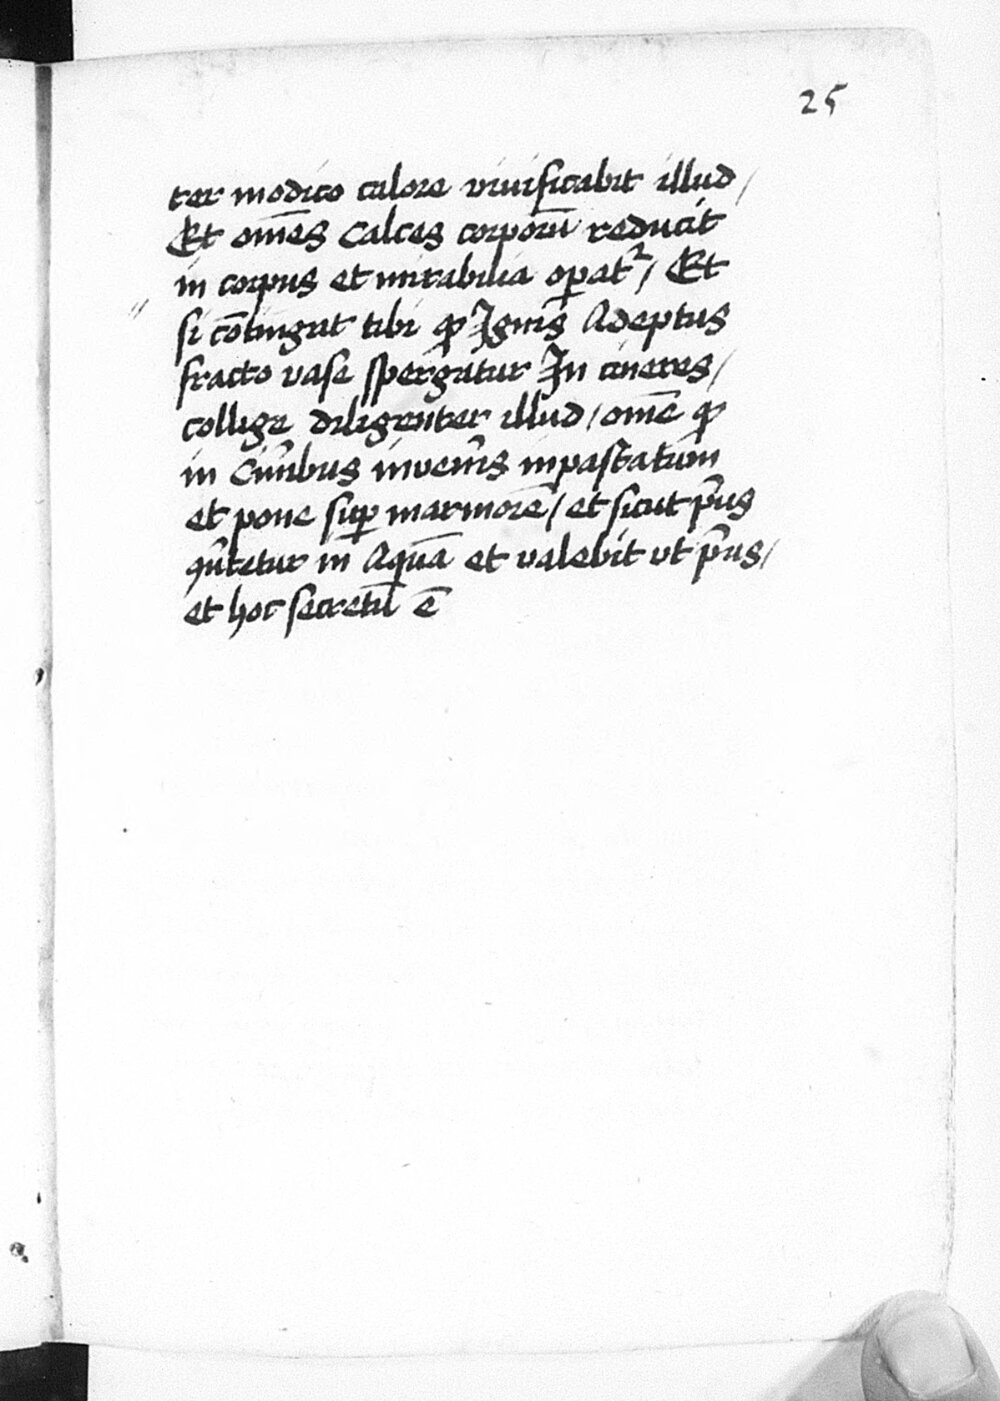 25
ter modico calore viuificabit illud /
Et om̄es Calces corporū reducit
in corpus et mirabilia oꝑatᷣ / Et
si cōtingat tibi ꝙ Ignis Adeptus
fracto vase spergatur In cineres /
collige diligenter illud / om̄e ꝙ
in Cin̄ibus inven̄is inpastatum
et pone suꝑ marmorē / et sicut p̄us
v̄tetur in Aquā et valebit vt p̄us /
et hoc secretū ē